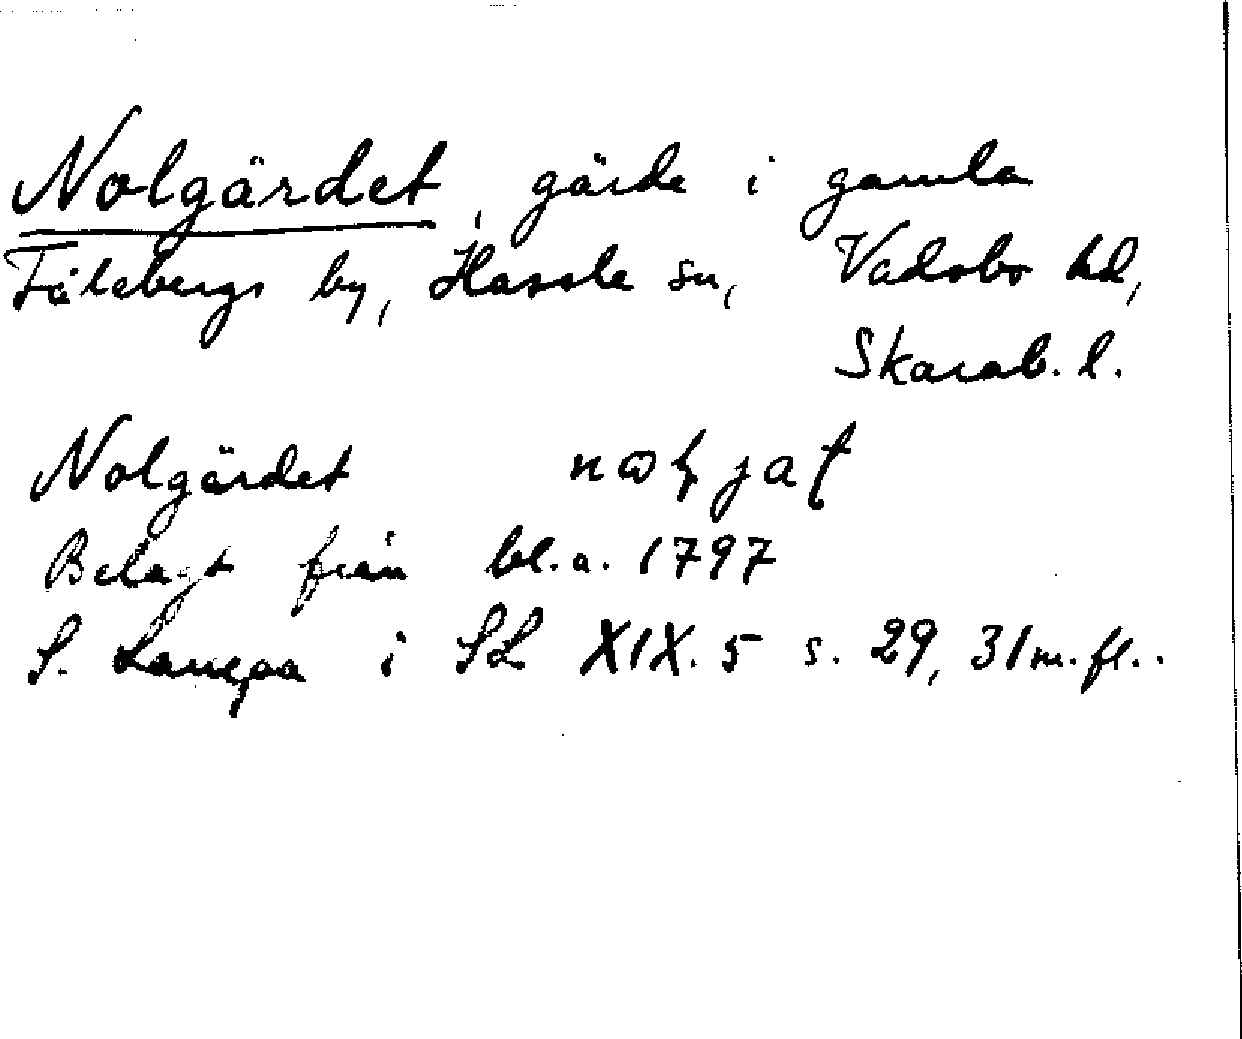 Nolgärdet, gärde i gamla
Fålebergs by, Hassle sn, Vadsbo hd,
Skarab. l.
Nolgärdet
Belagt från bl.a. 1797
S. Lampa i SL XIX. 5 s. 29, 31 m. fl..